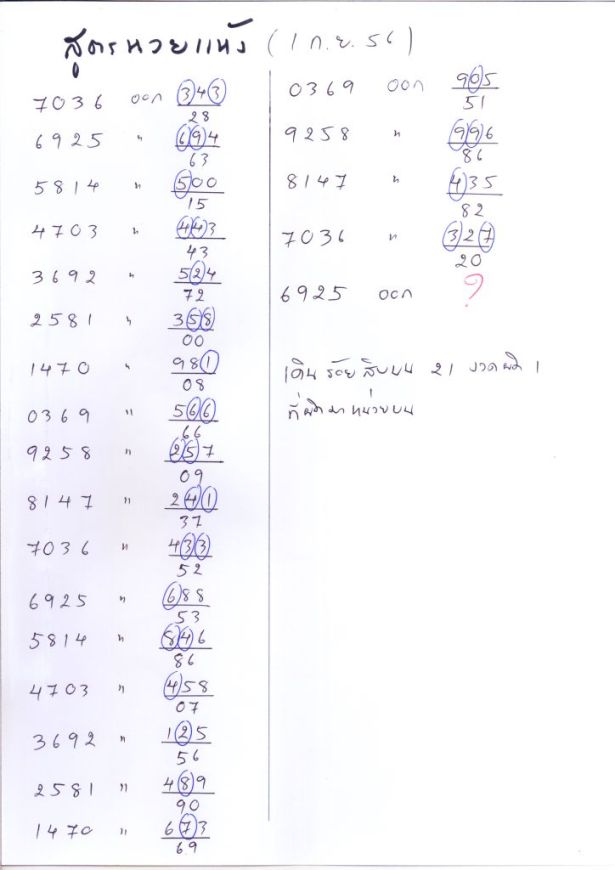 สูตรหวยแห้ว (1 ก.ย. 56)
7036 ออก 343
28
6925 " 694
63
5814 " 500
15
4703 " 443
43
3692 " 524
72
2581 " 358
00
1470 " 981
08
0369 " 566
66
9258 " 257
09
8147 " 241
37
7036 " 433
52
6925 " 688
53
5814 " 846
86
4703 " 458
07
3692 " 125
56
2581 " 489
90
1470 " 673
69
0369 ออก 905
51
9258 " 996
86
8147 " 435
82
7036 " 327
20
6925 ออก ?
เดินร้อยสิบบน 21 งวดผิด 1
ที่ผิดมาหน่วยบน